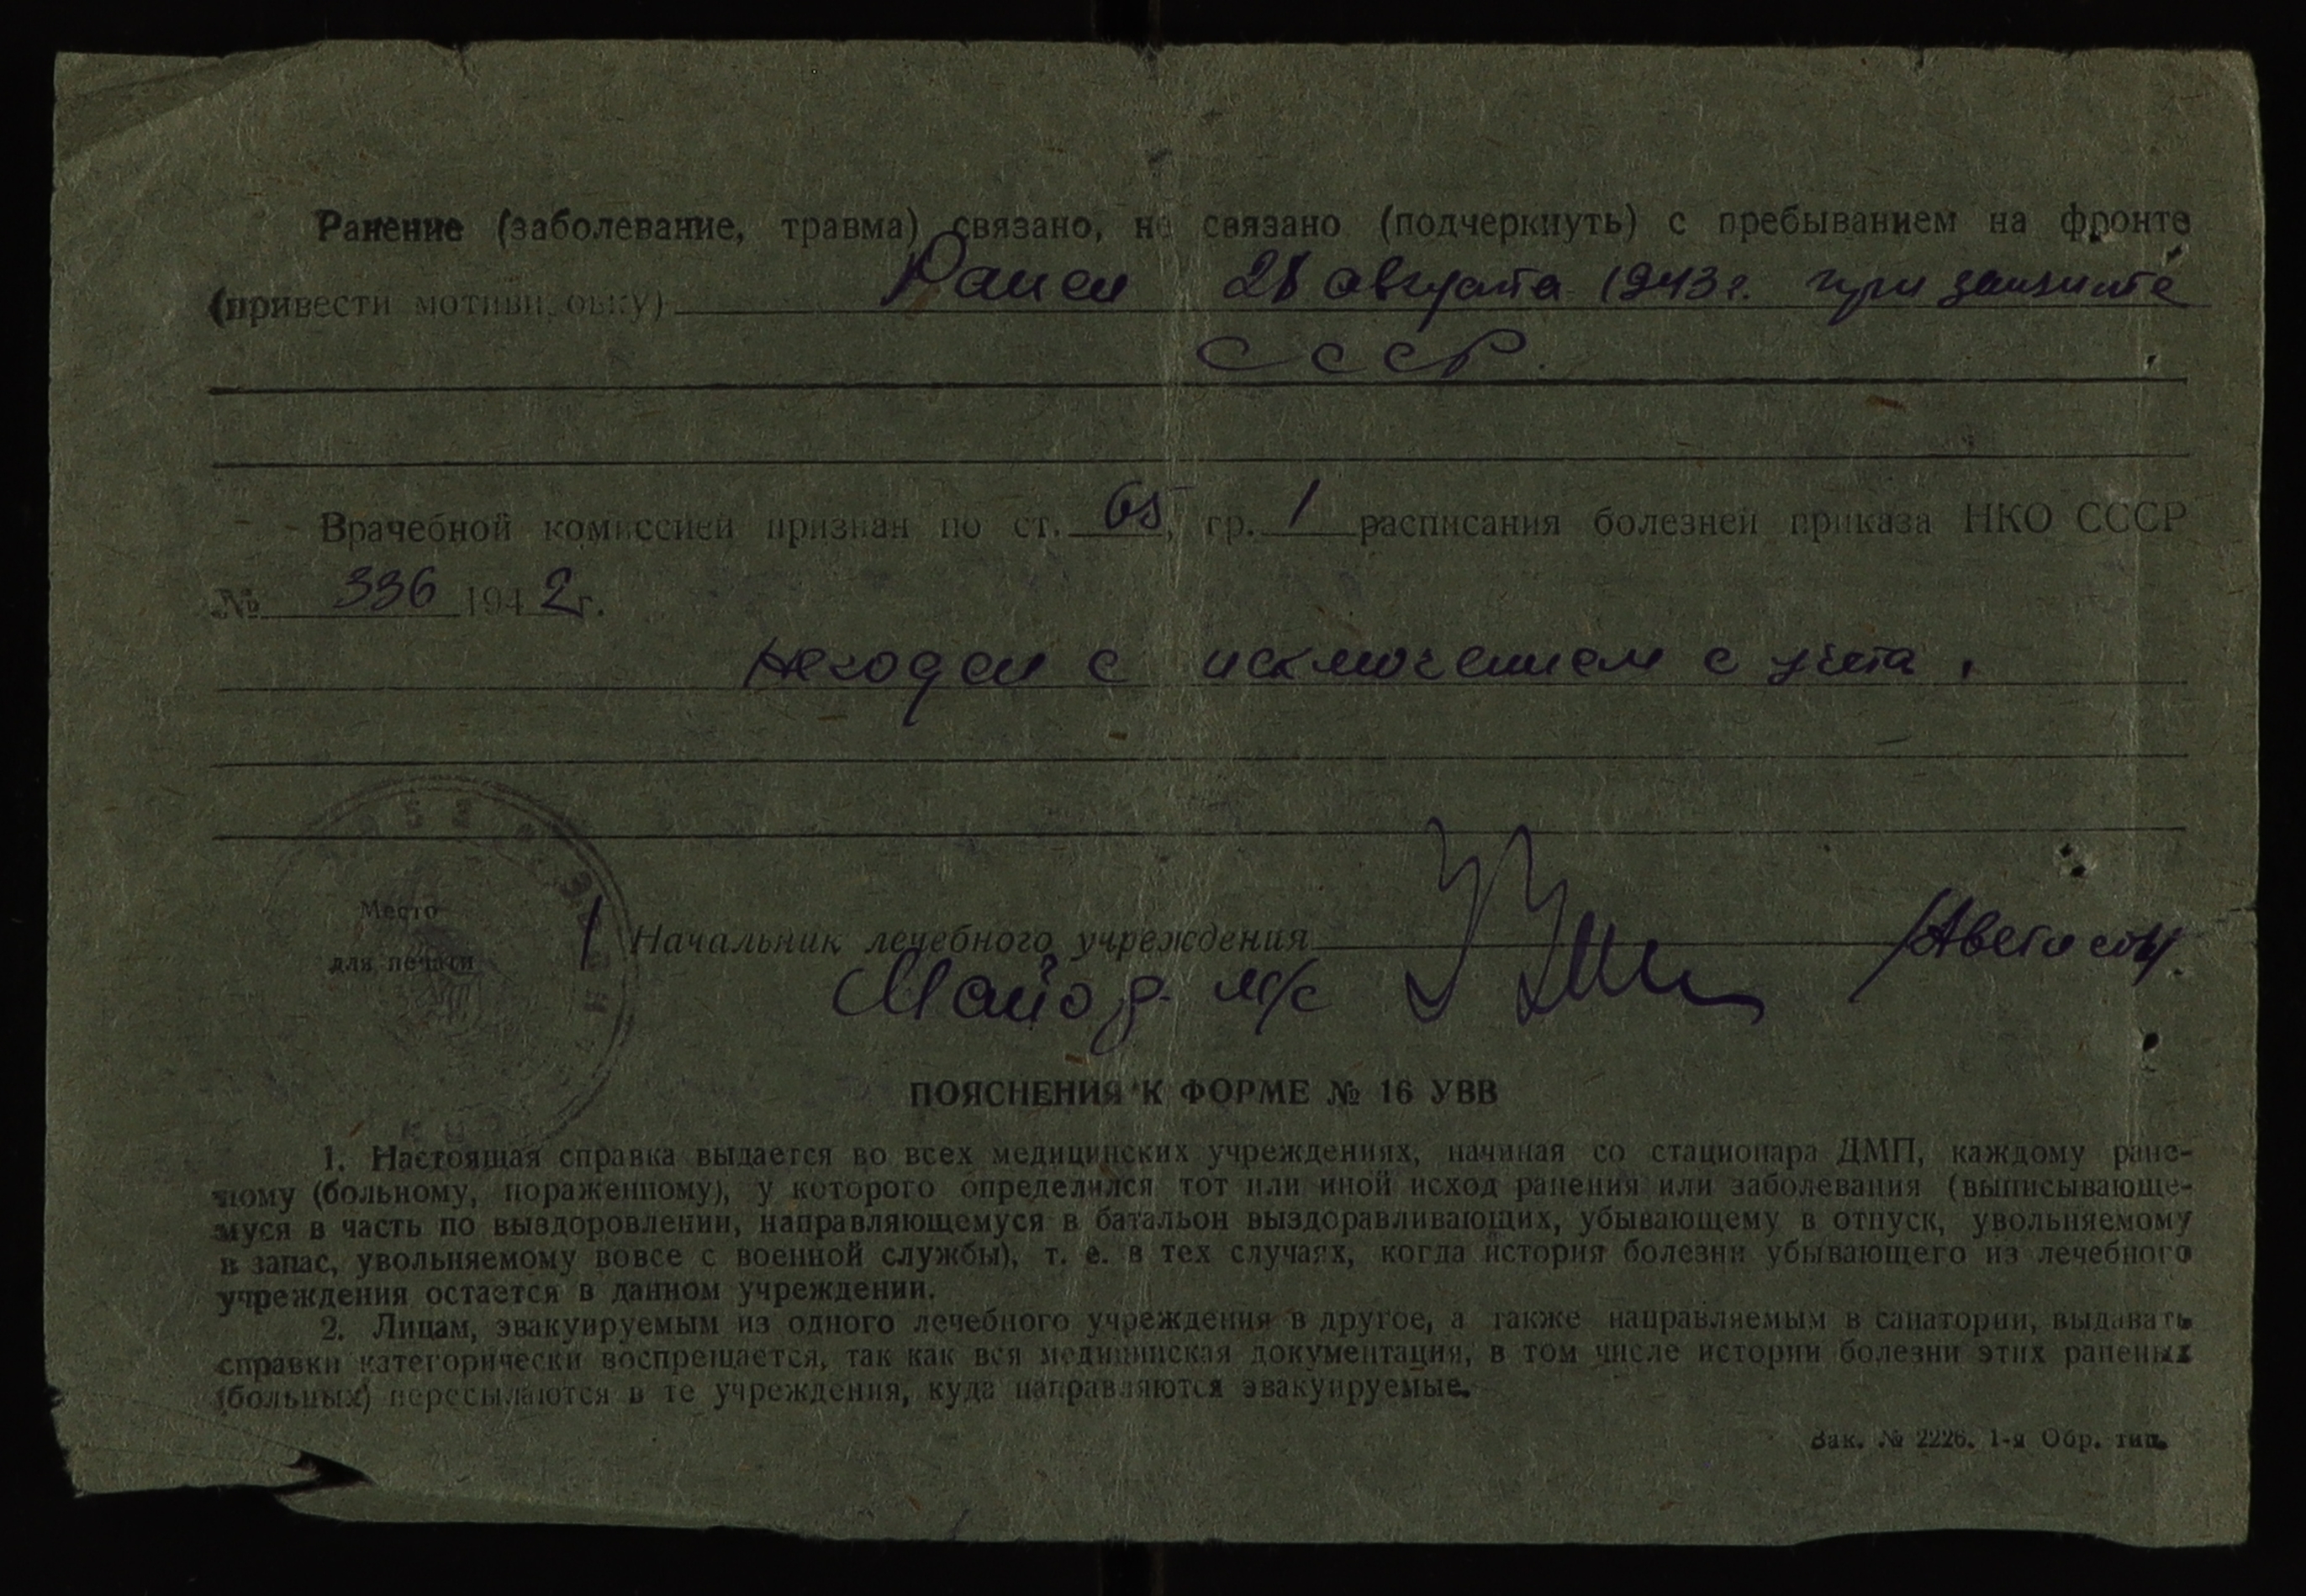 Ранение (заболевание, травма) связано, не связано (подчеркнуть) с пребыванием на фронте
(привести мотивировку) Ранен 28 августа 1943 г. при защите
СССР.
Врачебной комиссией признан по ст. 65, гр. 1 расписания болезней приказа НКО СССР
№ 336 1942 г.
негоден с исключением с учета.
Место
для печати
Начальник лечебного учреждения
Майор м/с
ПОЯСНЕНИЯ К ФОРМЕ № 16 УВВ
1. Настоящая справка выдается во всех медицинских учреждениях, начиная со стационара ДМП, каждому ране-
ному (больному, пораженному), у которого определился тот или иной исход ранения или заболевания (выписывающе-
муся в часть по выздоровлении, направляющемуся в батальон выздоравливающих, убывающему в отпуск, увольняемому
в запас, увольняемому вовсе с военной службы), т. е. в тех случаях, когда история болезни убывающего из лечебного
учреждения остается в данном учреждении.
2. Лицам, эвакуируемым из одного лечебного учреждения в другое, а также направляемым в санатории, выдавать
справки категорически воспрещается, так как вся медицинская документация, в том числе истории болезни этих раненых
(больных) пересылаются в те учреждения, куда направляются эвакуируемые.
Зак. № 2226. 1-я Обр. тип.